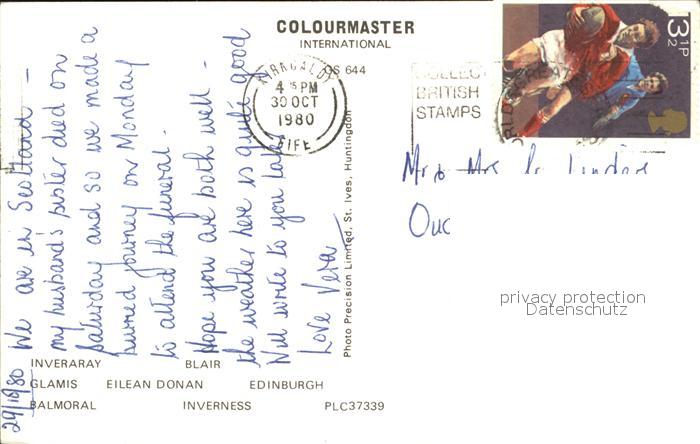 COLOURMASTER
INTERNATIONAL
OS 644
KIRKCALDY
4 15 PM
30 OCT
1980
FIFE
COLLECT
BRITISH
STAMPS
3½P
We are in Scotland -
my husband's sister died on
Saturday and so we made a
hurried journey on Monday
to attend the funeral.
Hope you are both well -
the weather here is quite good
Will write to you later
Love Vera
29/10/80
Photo Precision Limited, St. Ives, Huntingdon
Mr & Mrs
privacy protection
Datenschutz
INVERARAY BLAIR
GLAMIS EILEAN DONAN EDINBURGH
BALMORAL INVERNESS PLC37339